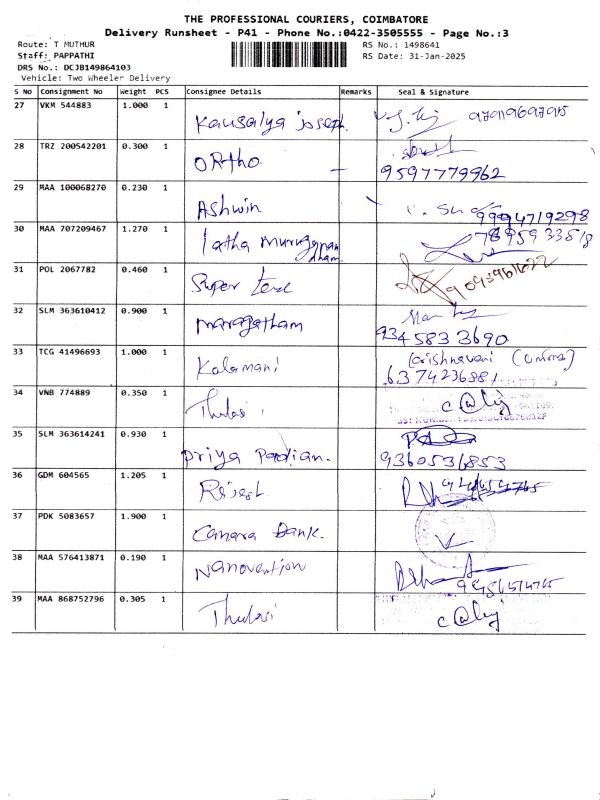 THE PROFESSIONAL COURIERS, COIMBATORE
Delivery Runsheet - P41 - Phone No.:0422-3505555 - Page No.:3
Route: T MUTHUR
RS No.: 1498641
Staff: PAPPATHI
RS Date: 31-Jan-2025
DRS No.: DCJB149864103
Vehicle: Two Wheeler Delivery
S No Consignment No Weight PCS Consignee Details Remarks Seal & Signature
27 VKM 544883 1.000 1
Kausalya Joseph.
28 TRZ 200542201 0.300 1
ORtho
9597779962
29 MAA 100068270 0.230 1
Ashwin
9994719298
30 MAA 707209467 1.270 1
latha murugynan
dham
31 POL 2067782 0.460 1
Super
32 SLM 363610412 0.900 1
maragatham
9345833690
33 TCG 41496693 1.000 1
Kalamani
6374236881
34 VNB 774889 0.350 1
Thulasi
35 SLM 363614241 0.930 1
Priya Padian.
9360536853
36 GDM 604565 1.205 1
37 PDK 5083657 1.900 1
Canara Bank.
38 MAA 576413871 0.190 1
Nanovention
39 MAA 868752796 0.305 1
Thulasi